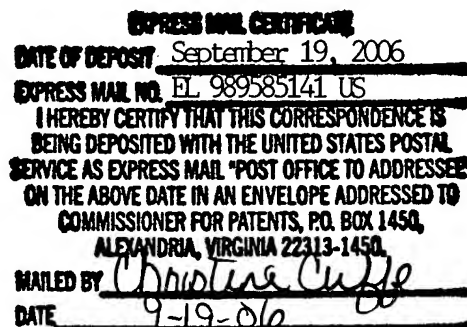 EXPRESS MAIL CERTIFICATE
DATE OF DEPOSIT September 19, 2006
EXPRESS MAIL NO. EL 989585141 US
I HEREBY CERTIFY THAT THIS CORRESPONDENCE IS
BEING DEPOSITED WITH THE UNITED STATES POSTAL
SERVICE AS EXPRESS MAIL "POST OFFICE TO ADDRESSEE
ON THE ABOVE DATE IN AN ENVELOPE ADDRESSED TO
COMMISSIONER FOR PATENTS, P.O. BOX 1450,
ALEXANDRIA, VIRGINIA 22313-1450.
MAILED BY Christine Cuffe
DATE 9-19-06